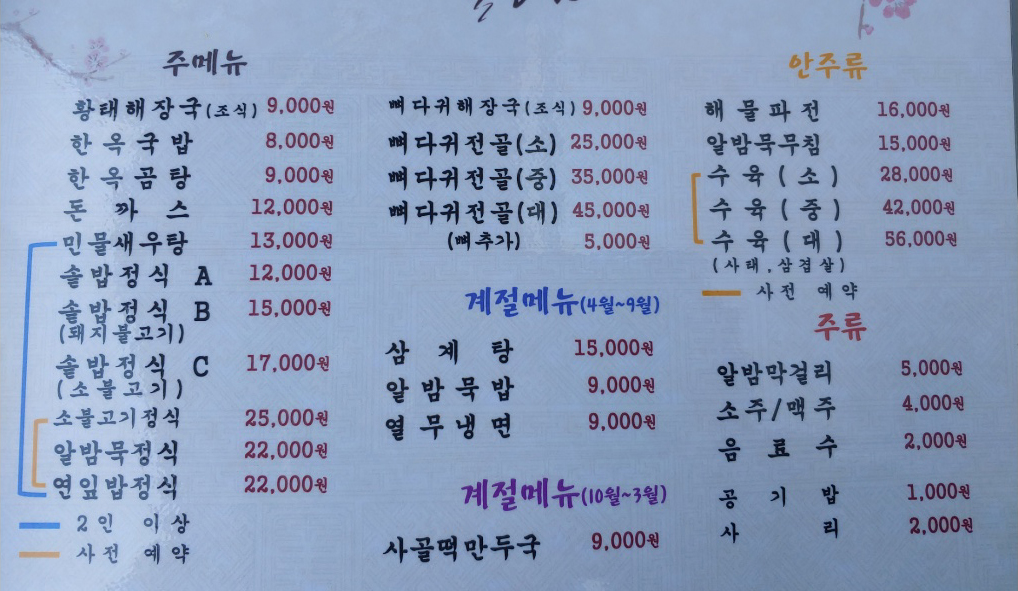 주메뉴
황태해장국(조식) 9,000원
한옥국밥 8,000원
한옥곰탕 9,000원
돈까스 12,000원
민물새우탕 13,000원
솔밥정식 A 12,000원
솔밥정식 B 15,000원
(돼지불고기)
솔밥정식 C 17,000원
(소불고기)
소불고기정식 25,000원
알밤묵정식 22,000원
연잎밥정식 22,000원
2인 이상
사전 예약
뼈다귀해장국(조식) 9,000원
뼈다귀전골(소) 25,000원
뼈다귀전골(중) 35,000원
뼈다귀전골(대) 45,000원
(뼈추가) 5,000원
계절메뉴(4월~9월)
삼계탕 15,000원
알밤묵밥 9,000원
열무냉면 9,000원
계절메뉴(10월~3월)
사골떡만두국 9,000원
안주류
해물파전 16,000원
알밤묵무침 15,000원
수육(소) 28,000원
수육(중) 42,000원
수육(대) 56,000원
(사태,삼겹살)
사전 예약
주류
알밤막걸리 5,000원
소주/맥주 4,000원
음료수 2,000원
공기밥 1,000원
사리 2,000원